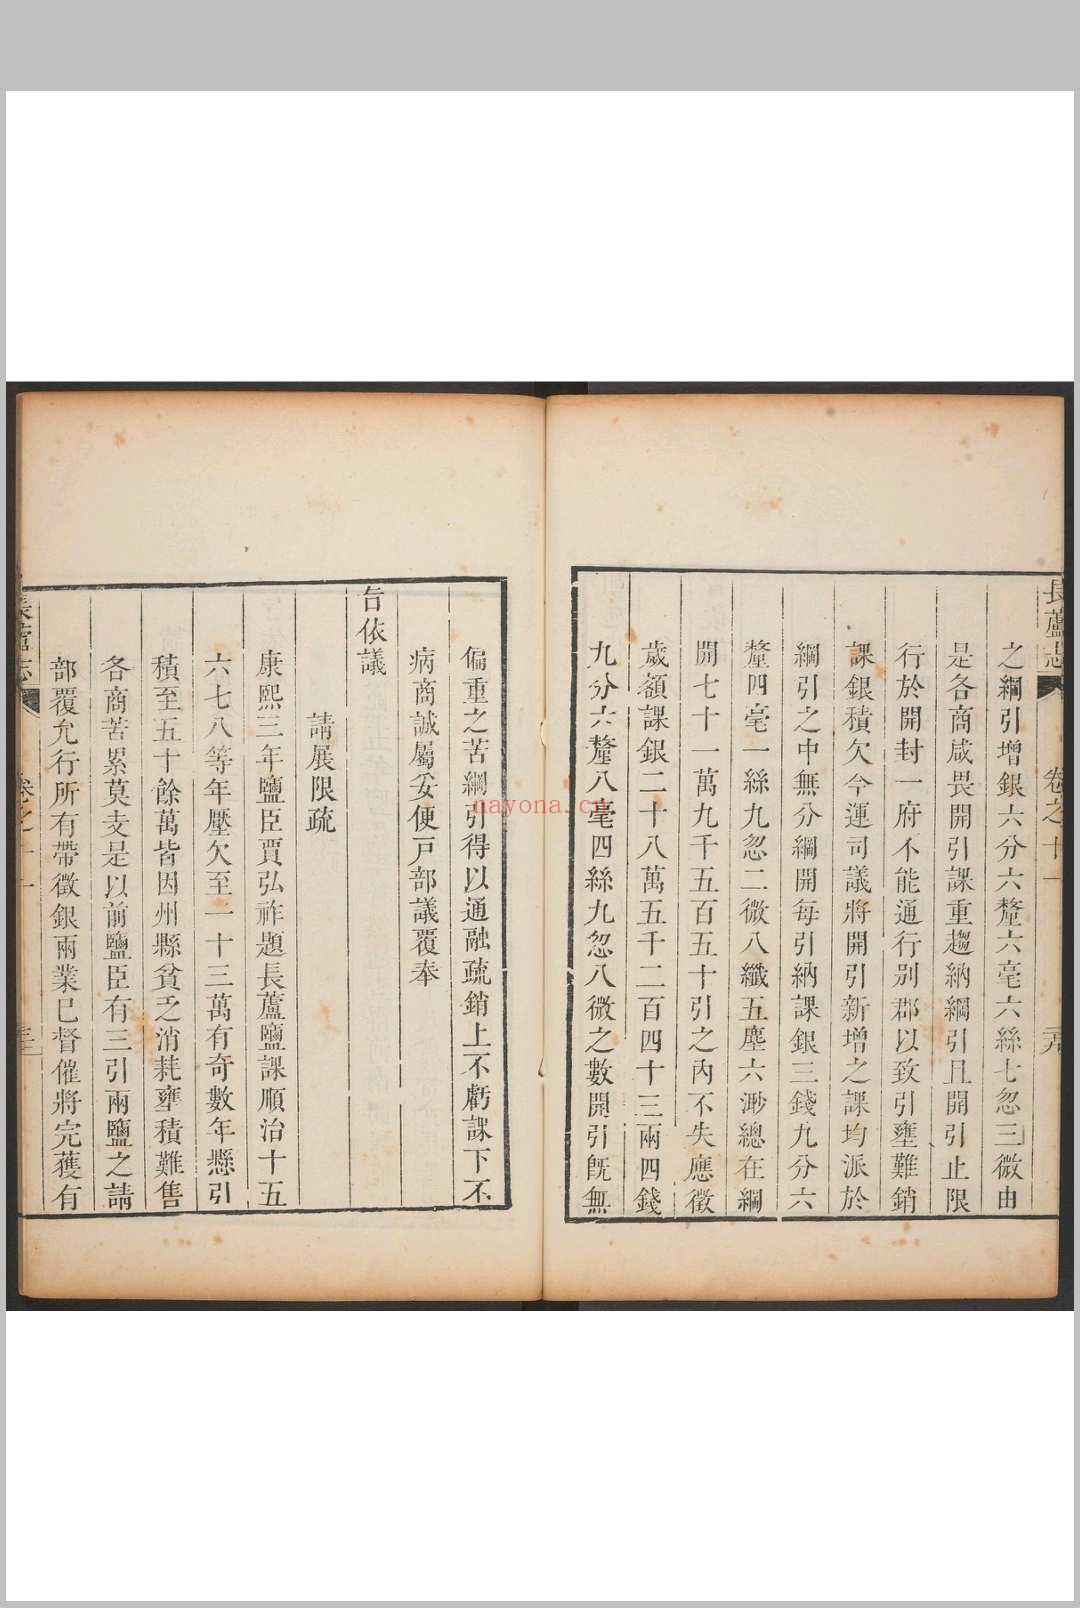 長蘆志
卷之十一
之綱引增銀六分六釐六毫六絲七忽三微由
是各商咸畏開引課重趨納綱引且開引止限
行於開封一府不能通行別郡以致引壅難銷
課銀積欠今運司議將開引新增之課均派於
綱引之中無分綱開每引納課銀三錢九分六
釐四毫一絲九忽二微八纖五塵六渺總在綱
開七十一萬九千五百五十引之內不失應徵
歲額課銀二十八萬五千二百四十三兩四錢
九分六釐八毫四絲九忽八微之數開引旣無
偏重之苦綱引得以通融疏銷上不虧課下不
病商誠屬妥便戸部議覆奉
旨依議
請展限疏
康熙三年鹽臣賈弘祚題長蘆鹽課順治十五
六七八等年壓欠至一十三萬有奇數年懸引
積至五十餘萬皆因州縣貧乏消耗壅積難售
各商苦累莫支是以前鹽臣有三引兩鹽之請
部覆允行所有帶徵銀兩業巳督催將完獲有
長蘆志
卷之十一
nayona.c